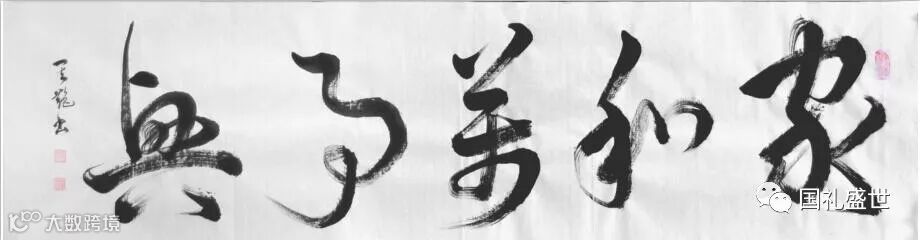 家和萬事興
国礼盛世
大数跨境